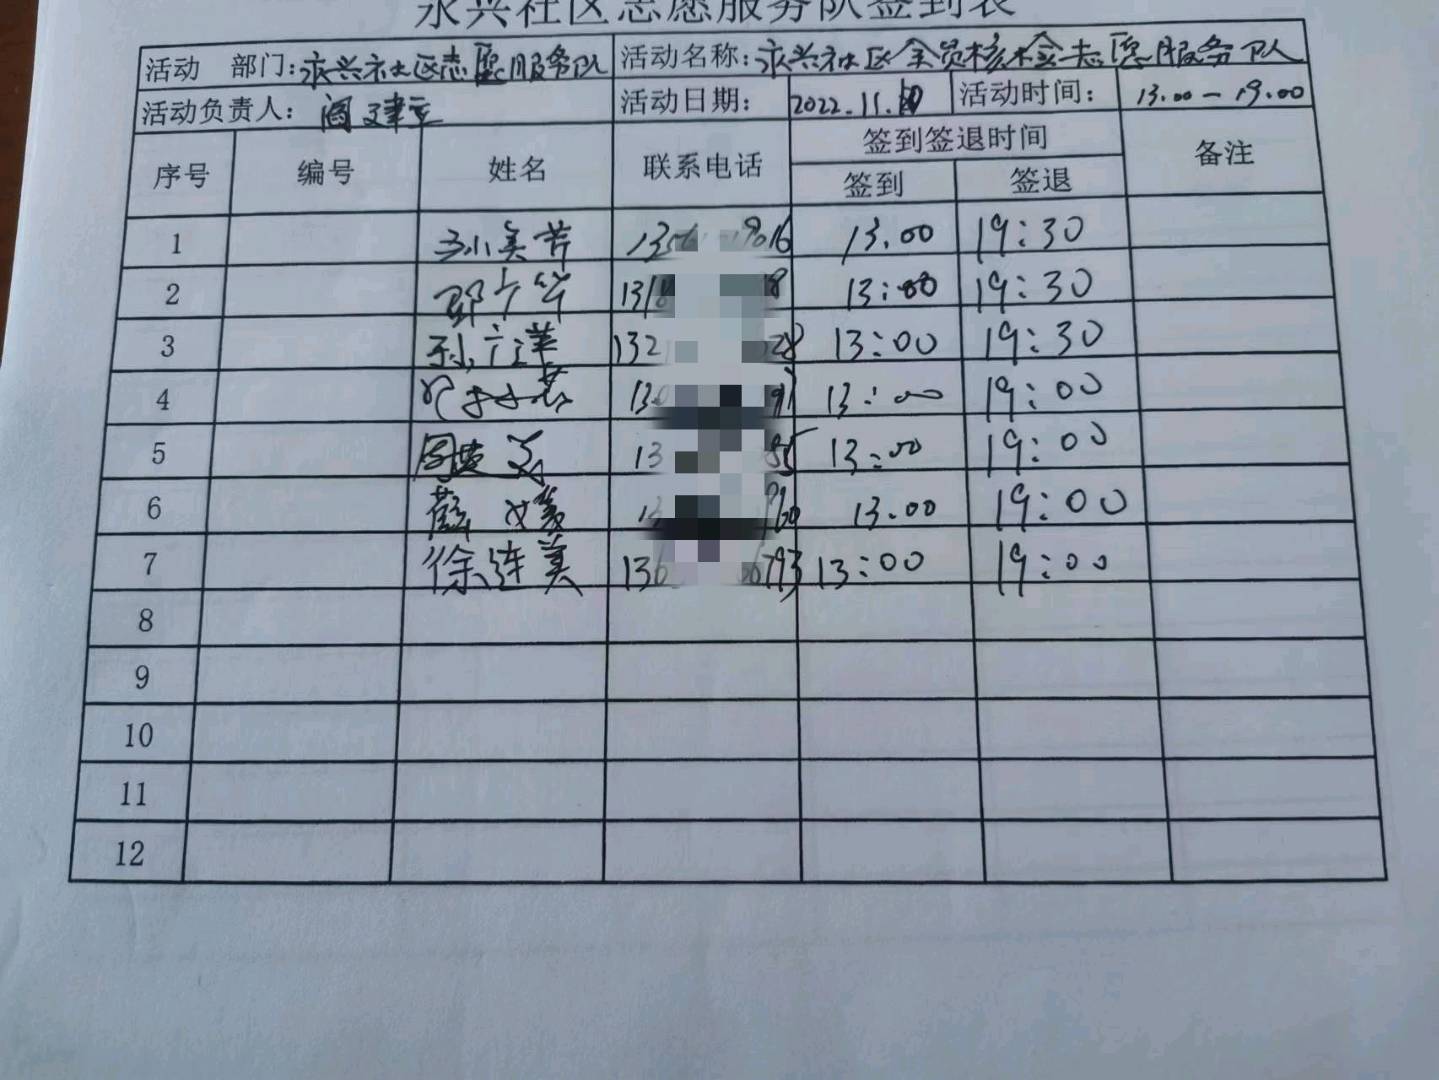 永兴社区志愿服务队签到表
活动 部门:永兴社区志愿服务队 活动名称:永兴社区全员核检志愿服务队
活动负责人: 阎建立 活动日期: 2022.11. 活动时间: 13.00-19.00
序号 编号 姓名 联系电话 签到签退时间 备注
签到 签退
1 13.00 19:30
2 13:00 19:30
3 孙广洋 132 28 13:00 19:30
4 13:00 19:00
5 13 13:00 19:00
6 13.00 19:00
7 徐连美 136 793 13:00 19:00
8
9
10
11
12